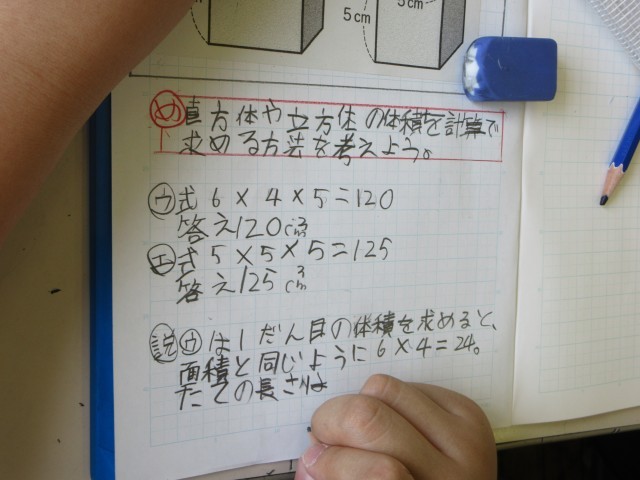 5cm
5cm
め 直方体や立方体の体積を計算で
求める方法を考えよう。
ウ 式 6×4×5=120
答え120cm³
エ 式 5×5×5=125
答え125cm³
説 ウは1だん目の体積を求めると、
面積と同じように6×4=24。
たての長さは